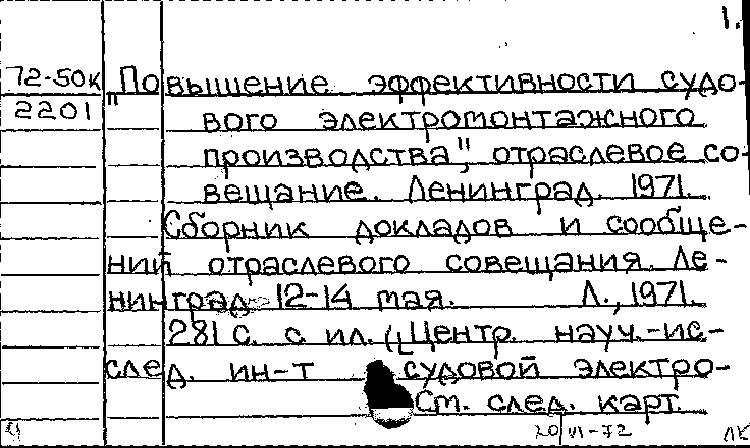 1.
72-50к "Повышение эффективности судо-
2201 вого электромонтажного
производства", отраслевое со-
вещание. Ленинград. 1971.
Сборник докладов и сообще-
ний отраслевого совещания. Ле-
нинград 12-14 мая. Л., 1971.
281 с. с ил. (Центр. науч.-ис-
след. ин-т судовой электро-
См. след. карт.
20/VI-72 ЛК